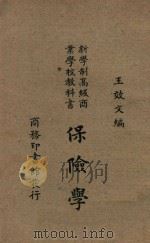 王效文編
新學制高級商
業學校教科書
保險學
商務印書館發行